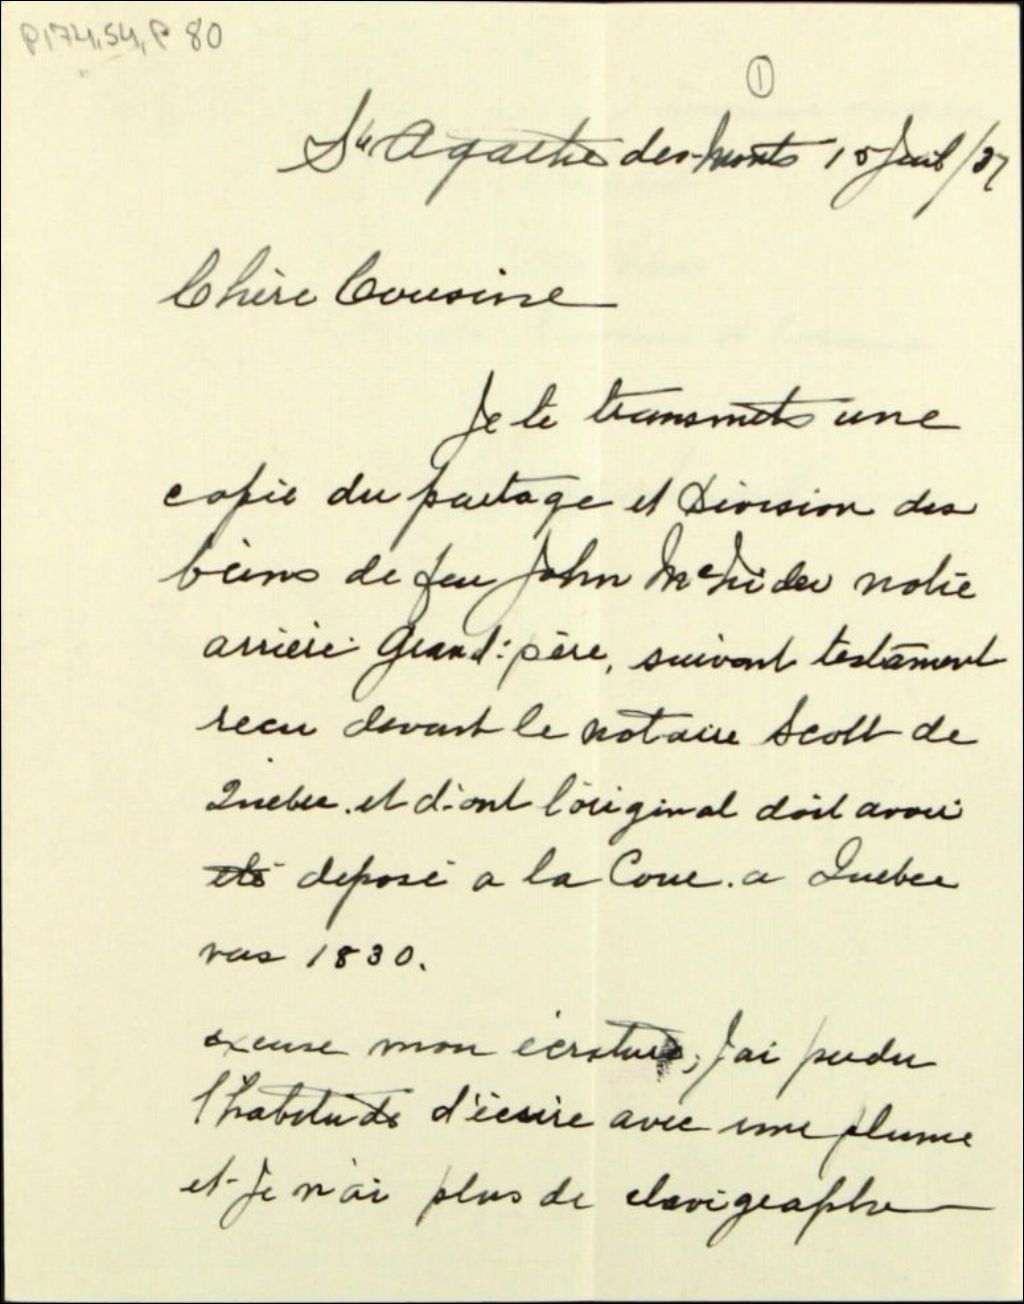 P174,S4,P80
1
Ste Agathe des-Monts 15 Juil/37
Chère Cousine
Je te transmets une
copie du partage et Division des
biens de feu John McNider notre
arrière Grand:père, suivant testament
recu devant le notaire Scott de
Quebec. et d-ont l'original doit avoir
été deposé a la Cour. a Quebec
vers 1830.
excuse mon écriture; J'ai perdu
l'habitude d'écrire avec une plume
et-Je n'ai plus de clavigraphe